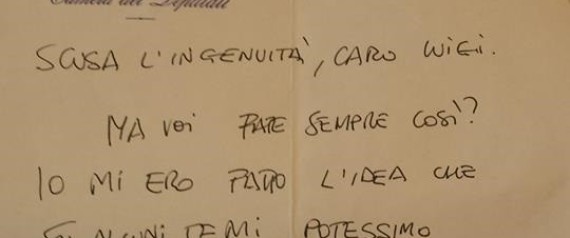 Camera dei Deputati
SCUSA L'INGENUITÀ, CARO WIGI.
MA VOI FATE SEMPRE COSÌ?
IO MI ERO FATTO L'IDEA CHE
TEMI POTESSIMO